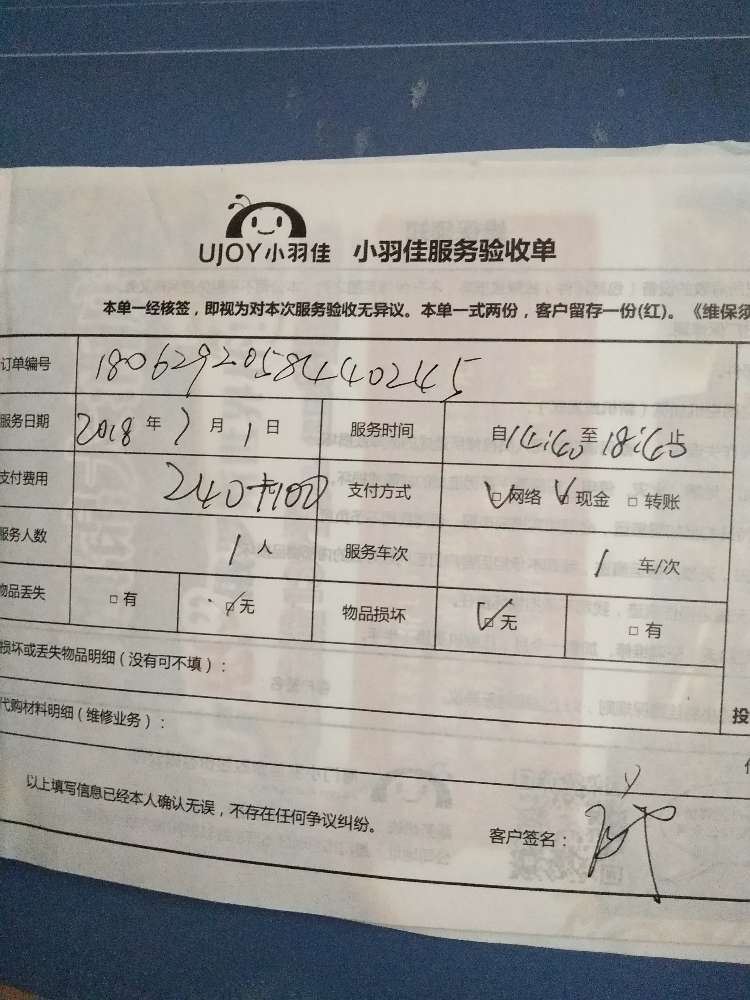 UJOY小羽佳 小羽佳服务验收单
本单一经核签，即视为对本次服务验收无异议。本单一式两份，客户留存一份(红)。《维保须
订单编号 18062920584440245
服务日期 2018 年 7 月 1 日 服务时间 自 至 止
支付费用 240+100 支付方式 ☑网络 ☑现金 □转账
服务人数 1人 服务车次 1 车/次
物品丢失 □有 ☑无 物品损坏 ☑无 □有
损坏或丢失物品明细（没有可不填）：
投
代购材料明细（维修业务）：
以上填写信息已经本人确认无误，不存在任何争议纠纷。 客户签名：